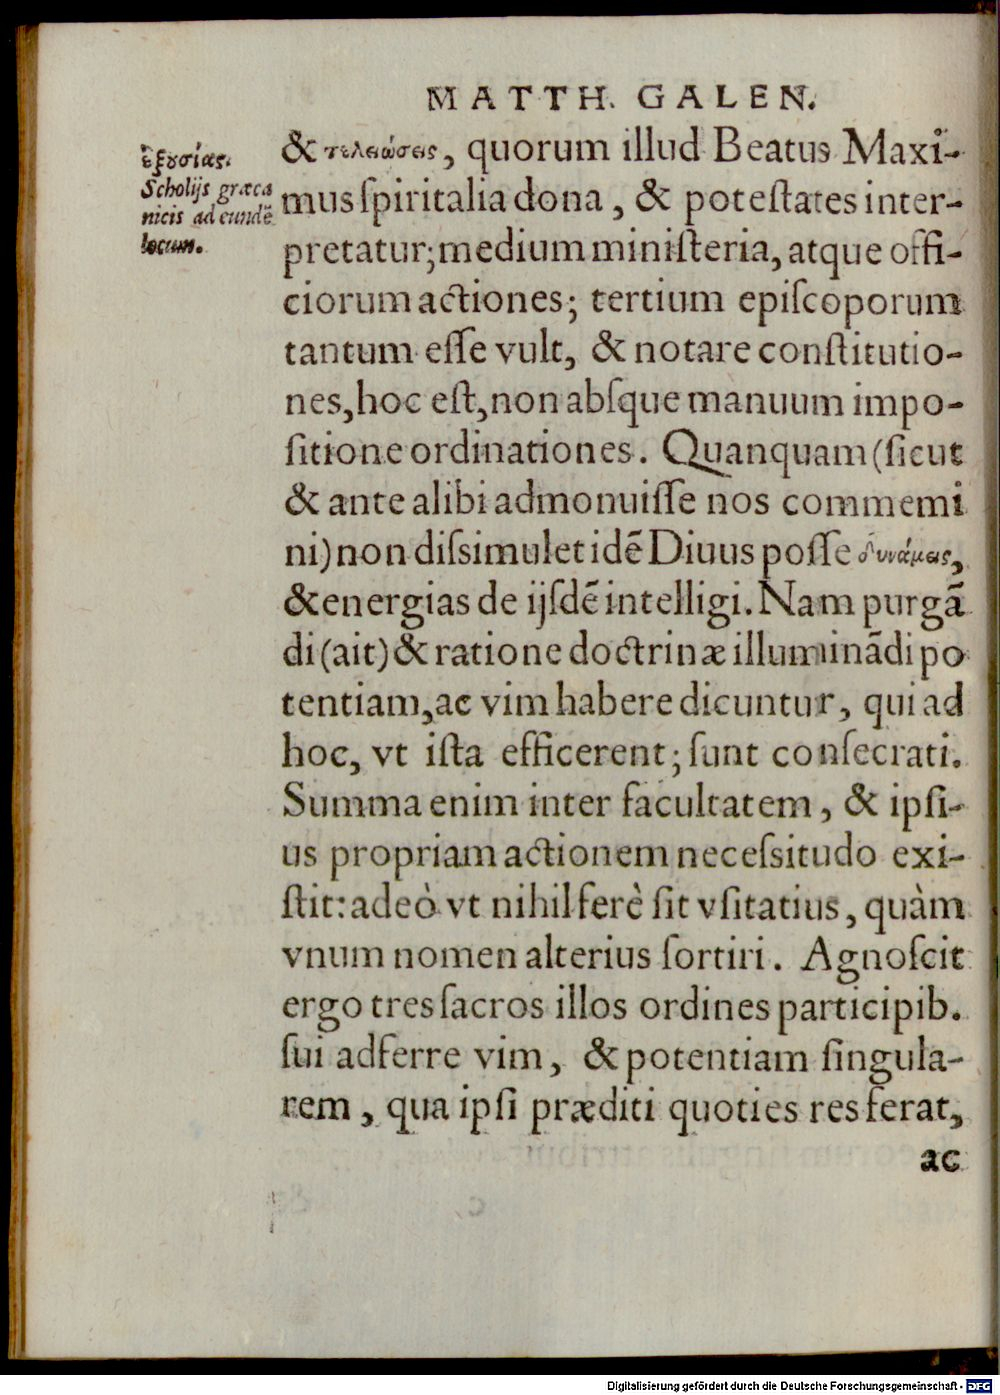 MATTH. GALEN.
ἐξουσίας.
Scholijs græca
nicis ad eundē
locum.
& τελειώσεις, quorum illud Beatus Maxi-
mus ſpiritalia dona, & poteſtates inter-
pretatur; medium miniſteria, atque offi-
ciorum actiones; tertium epiſcoporum
tantum eſſe vult, & notare conſtitutio-
nes, hoc eſt, non abſque manuum impo-
ſitione ordinationes. Quanquam (ſicut
& ante alibi admonuiſſe nos commemi
ni) non diſsimulet idē Diuus poſſe δυνάμεις,
& energias de ijſdē intelligi. Nam purgā
di (ait) & ratione doctrinæ illuminādi po
tentiam, ac vim habere dicuntur, qui ad
hoc, vt iſta efficerent; ſunt conſecrati.
Summa enim inter facultatem, & ipſi-
us propriam actionem neceſsitudo exi-
ſtit: adeò vt nihil ferè ſit vſitatius, quàm
vnum nomen alterius ſortiri. Agnoſcit
ergo tres ſacros illos ordines participib.
ſui adferre vim, & potentiam ſingula-
rem, qua ipſi præditi quoties res ferat,
ac
Digitalisierung gefördert durch die Deutsche Forschungsgemeinschaft - DFG